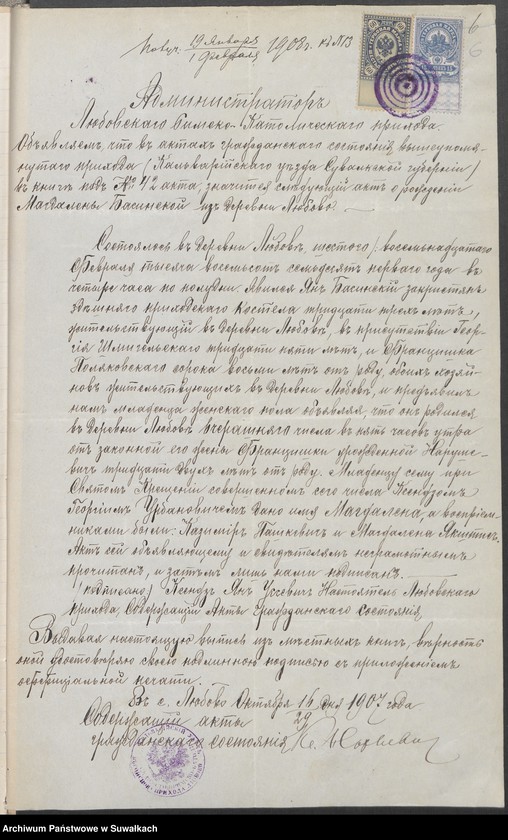 Получ. 19 Января / 1 Февраля 1908 г. к № 13
6
6
Администраторъ
Любовскаго Римско-Католическаго прихода.
Объявляетъ, что въ актахъ гражданскаго состоянія вышеупомя-
нутаго прихода (Кальварійскаго уѣзда Сувалкской губерніи)
въ книгѣ подъ № 42 акта, значится слѣдующій актъ о рожденіи
Магдалены Басинской изъ деревни Любово.
Состоялось въ деревнѣ Любовѣ, шестого /: восемьнадцатаго
Февраля тысяча восемьсотъ семьдесятъ перваго года въ
четыре часа по полудни. Явился Янъ Басинскій закристянъ
здѣшняго приходскаго костела тридцати трехъ лѣтъ,
жительствующій въ деревнѣ Любовѣ, въ присутствіи Геор-
гія Шмигельскаго тридцати пяти лѣтъ, и Францишка
Поляковскаго сорока восьми лѣтъ отъ роду, обоихъ хозяй-
новъ жительствующихъ въ деревнѣ Любовѣ, и предъявилъ
намъ младенца женскаго пола объявляя, что онъ родился
въ деревнѣ Любовѣ вчерашняго числа въ пять часовъ утра
отъ законной его жены Францишки урожденной Наруше-
вичъ тридцати двухъ лѣтъ отъ роду. Младенцу сему при
Святомъ Крещеніи совершенномъ сего числа Ксендзомъ
Георгіемъ Урбановичемъ дано имя Магдалена, а воспріем-
никами были: Казиміръ Пашкевичъ и Магдалена
Актъ сей объявляющему и свидѣтелямъ неграмотнымъ
прочитанъ, и затѣмъ лишь нами подписанъ.
(подписано) Ксендзъ Янъ Настоятель Любовскаго
прихода, Содержащій Акты гражданскаго состоянія.
Выдавая настоящую выпись изъ мѣстныхъ книгъ, вѣрность
оной удостовѣряю своею подлинною подписью съ приложеніемъ
оффиціальной печати.
Въ с. Любово Октября 16/29 дня 1907 года
Содержащій акты
гражданскаго состоянія Кс.
Archiwum Państwowe w Suwałkach